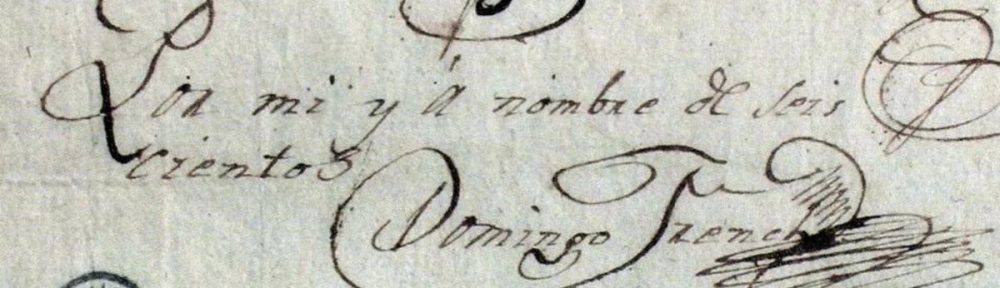 Por mi y á nombre de seis
cientos
Domingo French